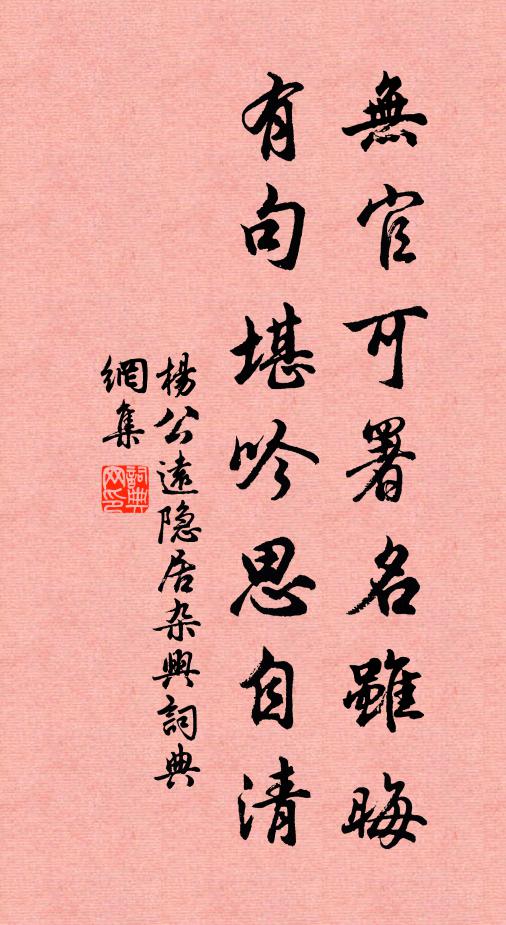 無官可署名雖晦
有句堪吟思自清
楊公遠隐居杂興詞典
網集
詞典網印